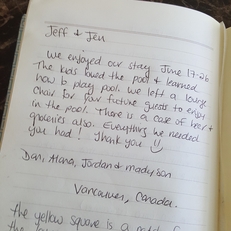 Jeff & Jen
We enjoyed our stay June 17-26
The kids loved the pool & learned
how to play pool. We left a lounge
chair for your future guests to enjoy
in the pool. There is a case of beer &
groceries also. Everything we needed
you had! Thank you
Dan, Alana, Jordan & Madyson
Vancouver, Canada.
the yellow square is a
the